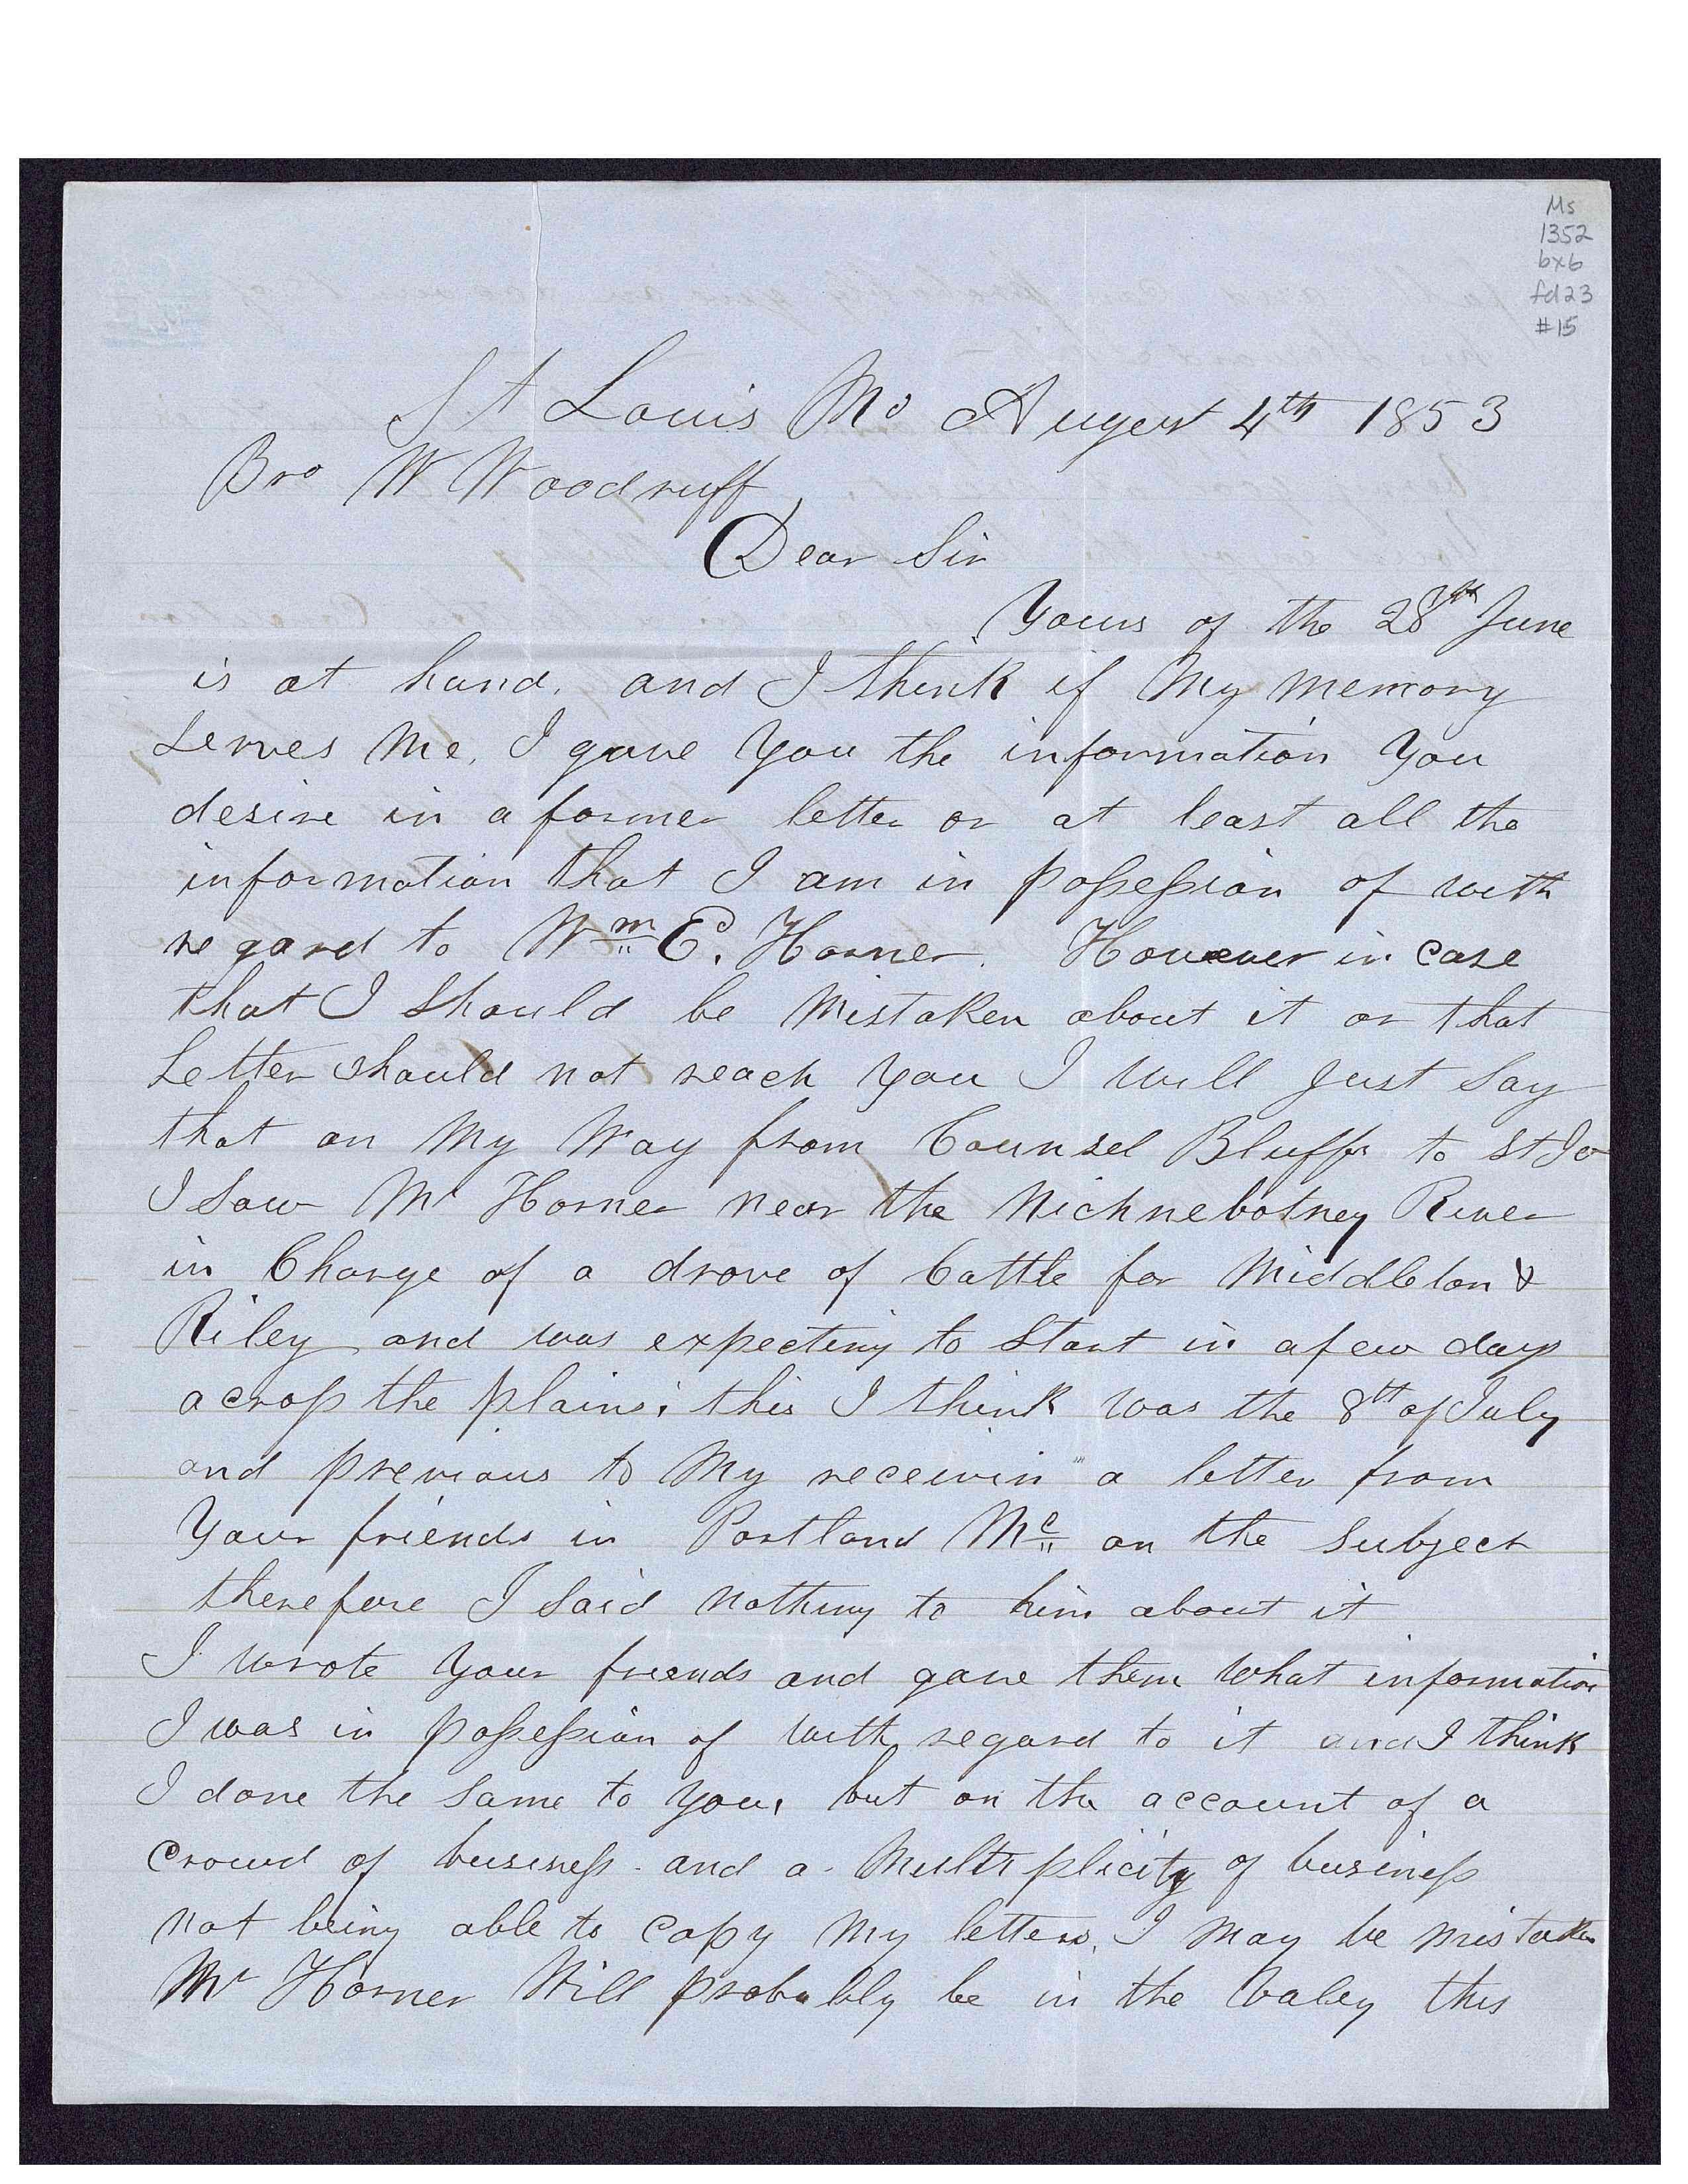 Ms
1352
bx6
fd23
#15
St Louis Mo August 4th 1853
Bro W Woodruff,
Dear Sir
Yours of the 28th June
is at hand, and I think if My memory
serves Me, I gave You the information You
desire in a former letter or at least all the
information that I am in possession of with
regard to Wm E. Horner. However in case
that I should be Mistaken about it or that
Letter should not reach you I will just say
that on My Way from Counsel Bluffs to St Jo
I saw Mr Horner near the Nichnebotney River
in Charge of a drove of Cattle for Middleton &
Riley and was expecting to start in a few days
across the plains. this I think was the 8th of July
and previous to My receivin" a letter from
Your friends in Portland Me on the subject
therefore I said nothing to him about it
I wrote your friends and gave them what information
I was in possession of with regard to it and I think
I done the same to you, but on the account of a
crowd of business - and a - Multiplicity of business
not being able to copy My letters, I may be mistaken
Mr Horner Will probably be in the Valey this